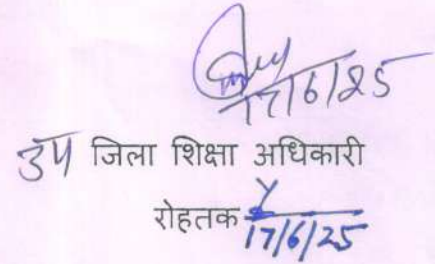 17/6/25
उप जिला शिक्षा अधिकारी
रोहतक
17/6/25